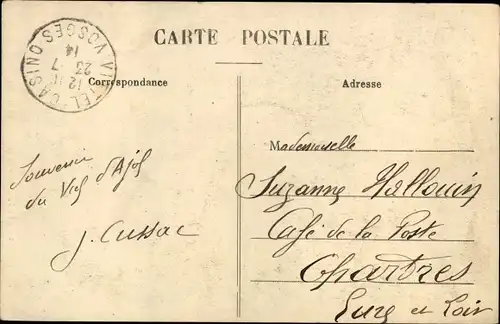 VITTEL CASINO VOSGES
12
23 7
14
CARTE POSTALE
Correspondance
Adresse
Souvenir
du Val d'Ajol
J. Cussac
Mademoiselle
Suzanne Hallouin
Café de la Poste
Chartres
Eure et Loir